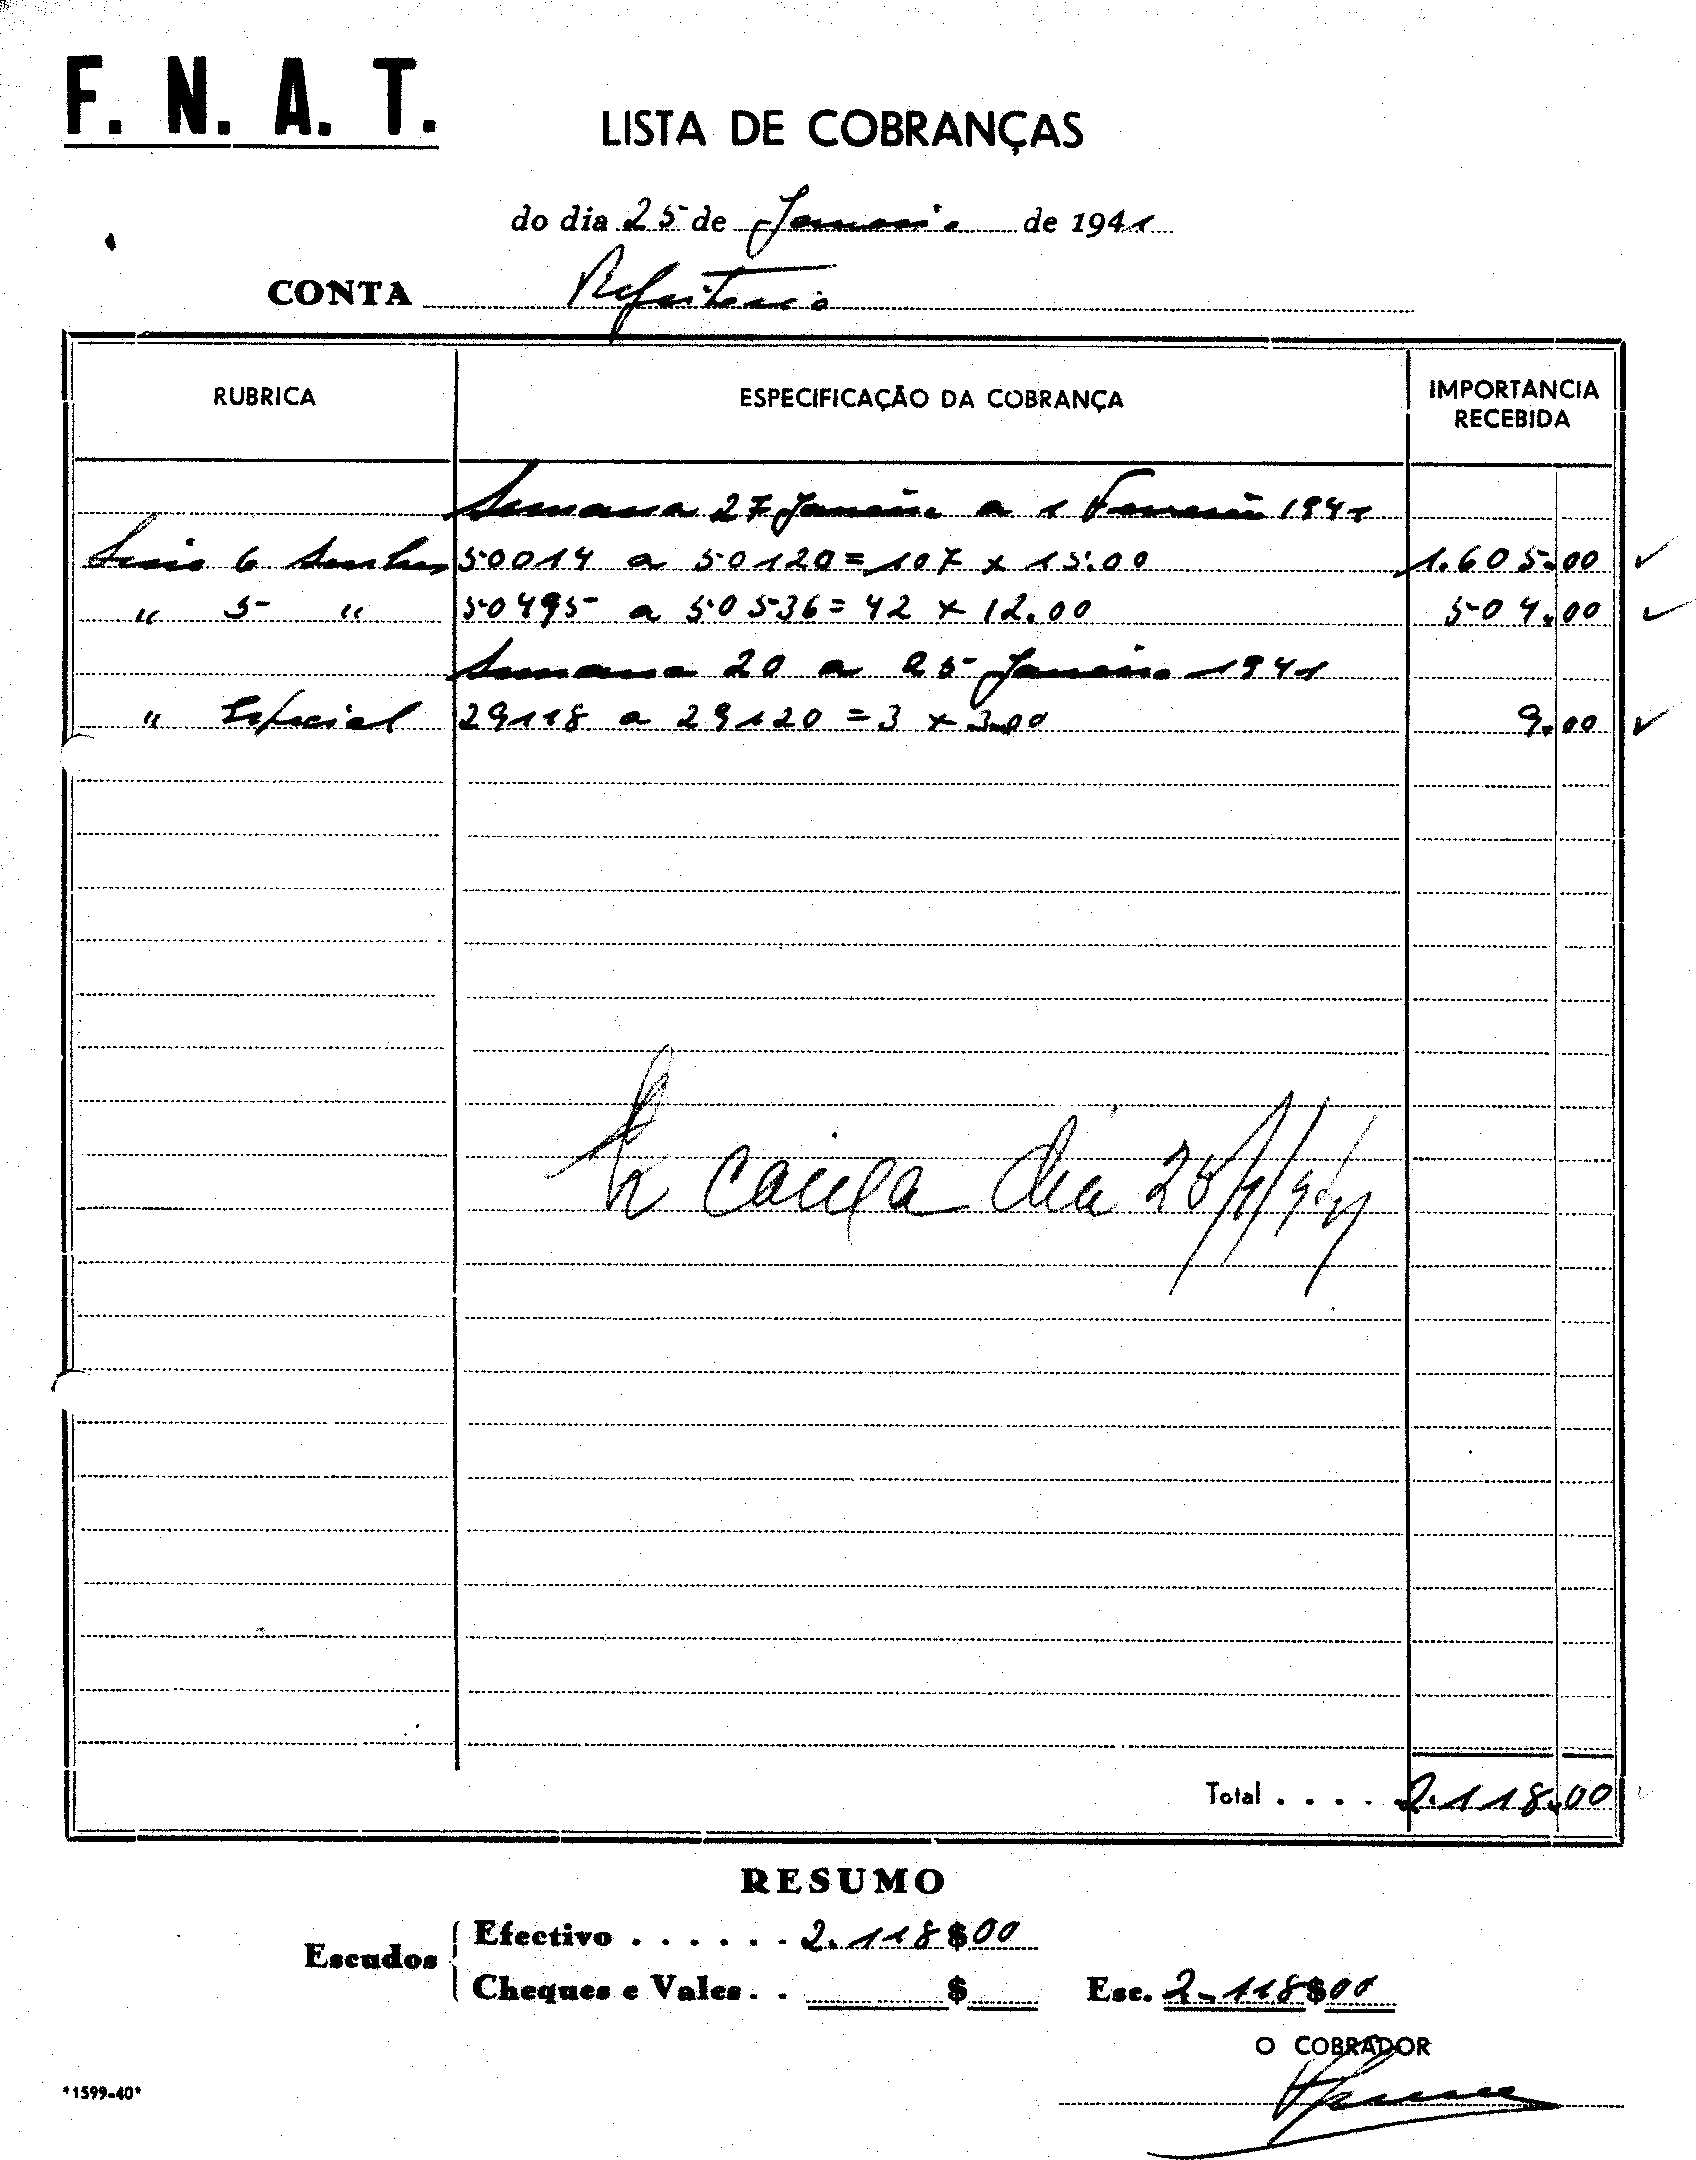 F. N. A. T.
LISTA DE COBRANÇAS
do dia 25 de Janeiro de 1941
CONTA Refeitorio
RUBRICA ESPECIFICAÇÃO DA COBRANÇA IMPORTANCIA RECEBIDA
Semana 27 Janeiro a 1 Fevereiro 1941
6 Senhas 50014 a 50120 = 107 x 15.00 1.605.00
" 5 " 50495 a 50536 = 42 x 12.00 504.00
Semana 20 a 25 Janeiro 1941
" Especial 29118 a 29120 = 3 x 3.00 9.00
caixa dia 25/1/941
Total . . . . 2.118.00
RESUMO
Escudos
Efectivo . . . . . . 2.118$00
Cheques e Vales . . $ Esc. 2.118$00
O COBRADOR
*1599-40*